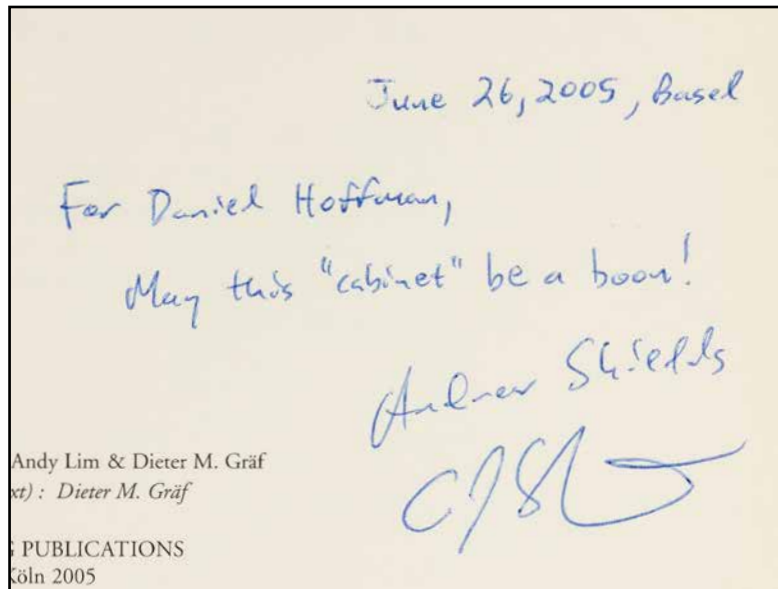 June 26, 2005, Basel
For Daniel Hoffman,
May this "cabinet" be a boon!
Andrew Shields
Andy Lim & Dieter M. Gräf
xt) : Dieter M. Gräf
PUBLICATIONS
Köln 2005